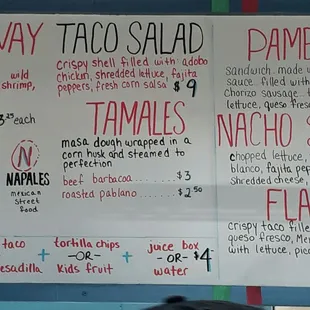 WAY
wild
shrimp,
3.25 each
N
NAPALES
mexican
street
food
TACO SALAD
crispy shell filled with adobo
chickin, shredded lettuce, fajita
peppers, fresh corn salsa $9
TAMALES
masa dough wrapped in a
corn husk and steamed to
perfection
beef barbacoa $3
roasted pablano $2.50
PAMB
sandwich made w
sauce filled with
chorizo sausage
lettuce, queso fres
NACHO S
chopped lettuce,
blanco, fajita pep
shredded cheese,
FLA
crispy taco fille
queso fresco, Me
with lettuce, pic
taco + tortilla chips + juice box
-OR- -OR- $4
esadilla kids fruit water